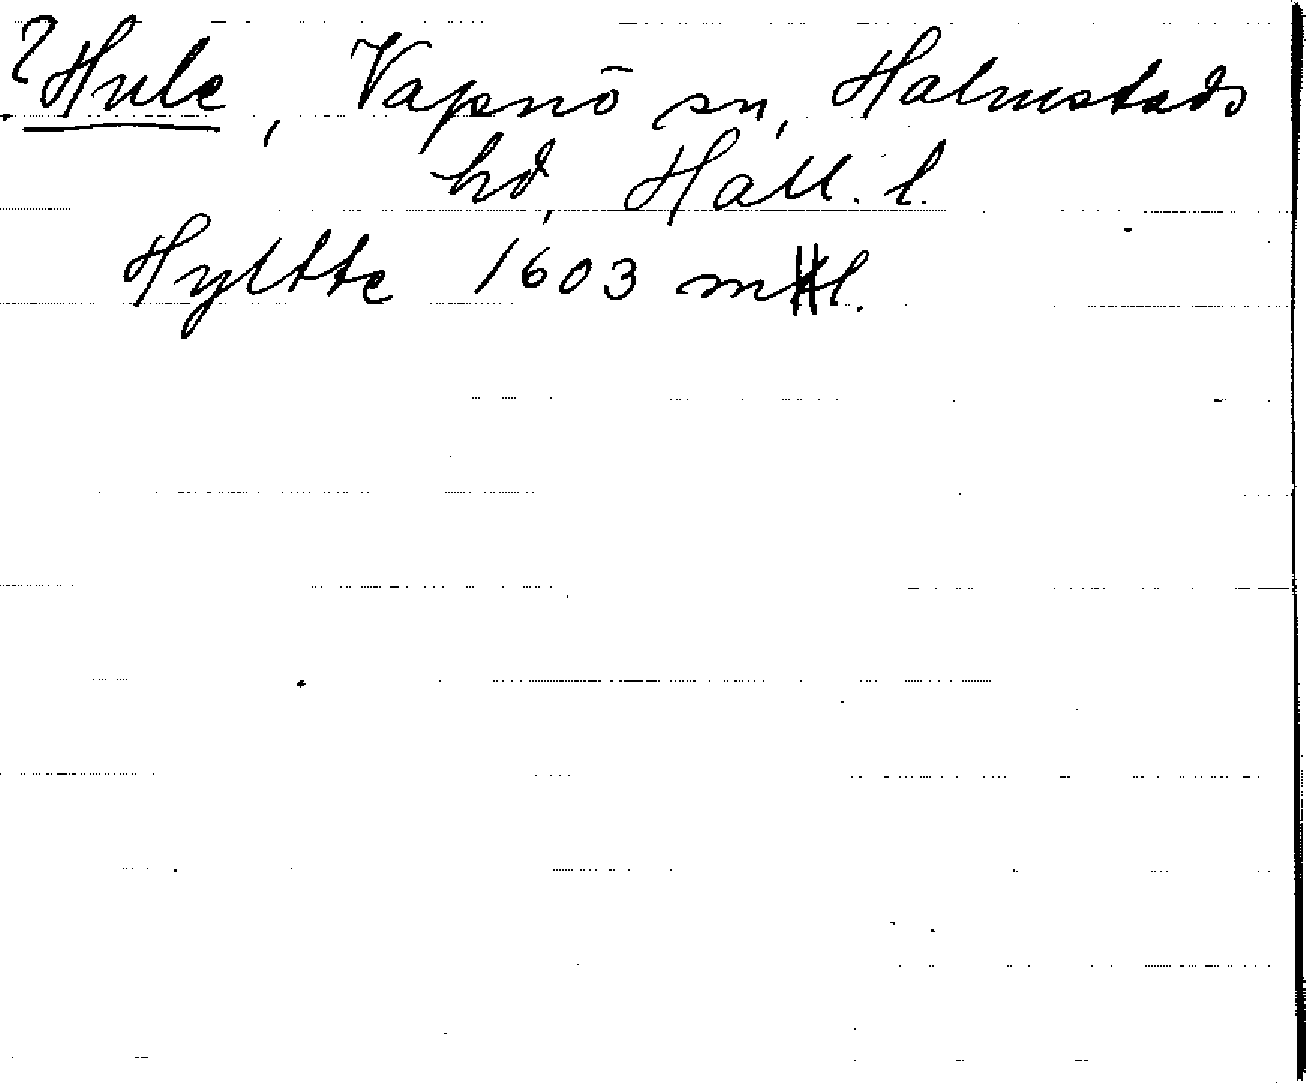 ? Hule, Vapnö sn, Halmstads
hd, Hall. l.
Hyltte 1603 mtl.